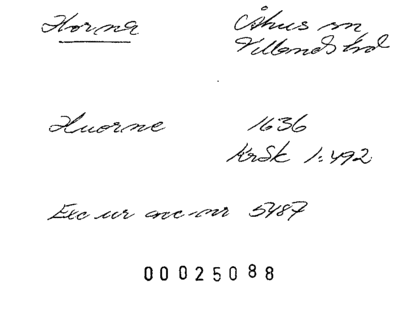 Horna Åhus sn
Villands hd
Huorne 1636
KrSk 1:492
Exc ur acc-nr 5487
00025088